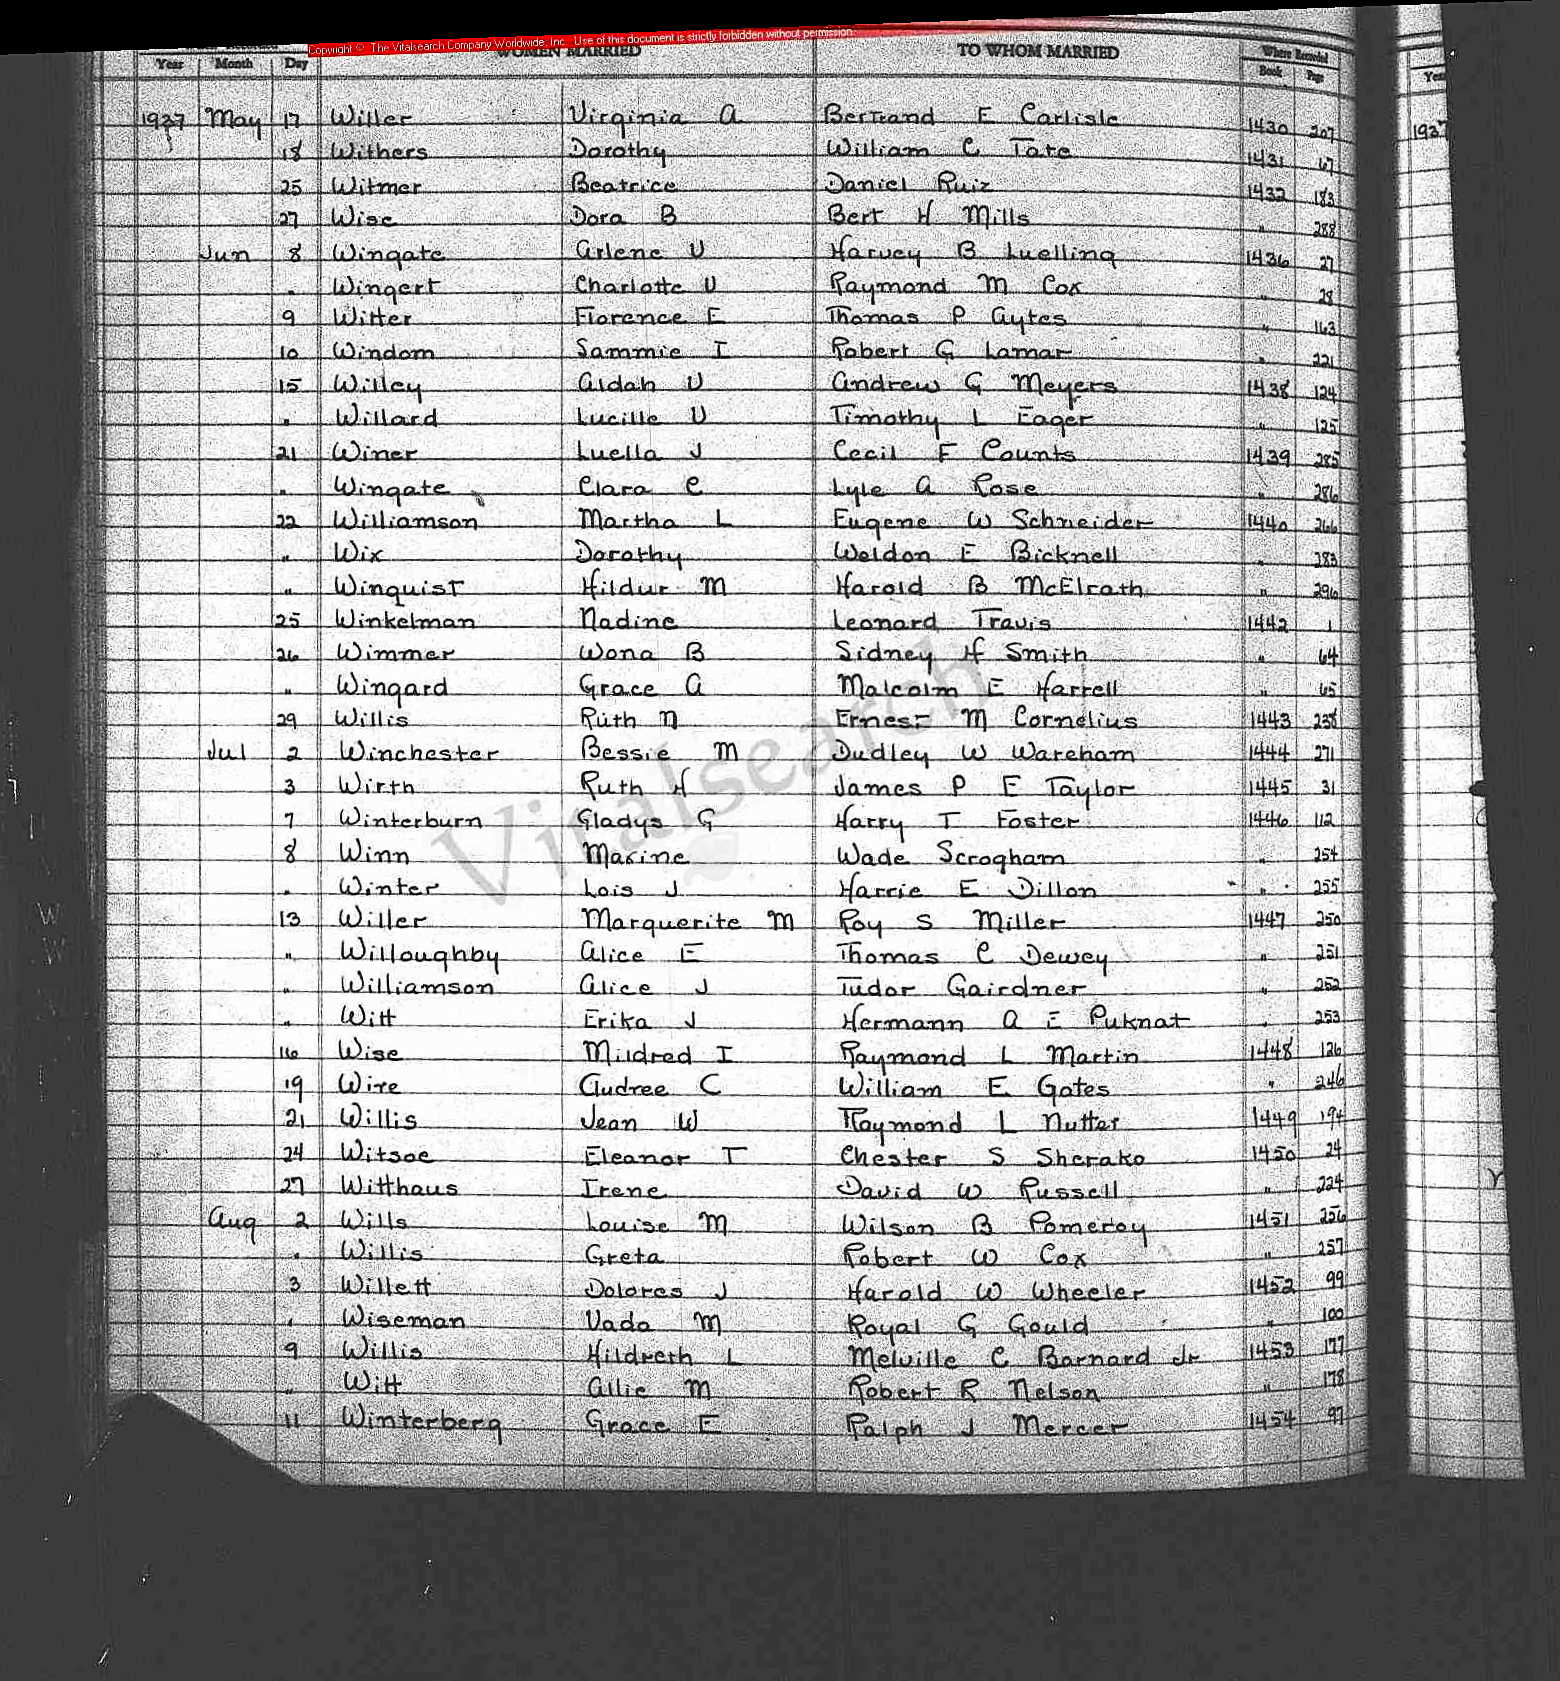 Copyright © The Vitalsearch Company Worldwide, Inc. Use of this document is strictly forbidden without permission.
WOMEN MARRIED TO WHOM MARRIED Where Recorded
Year Month Day Book Page
1937 May 17 Willer Virginia A Bertrand E Carlisle 1430 207
18 Withers Dorothy William C Tate 1431 67
25 Witmer Beatrice Daniel Ruiz 1432 183
27 Wise Dora B Bert H Mills " 288
Jun 8 Wingate Arlene V Harvey B Luelling 1436 27
" Wingert Charlotte V Raymond M Cox " 28
9 Witter Florence E Thomas P Aytes " 163
10 Windom Sammie I Robert G Lamar " 221
15 Willey Aldah V Andrew G Meyers 1438 124
" Willard Lucille V Timothy L Eager " 125
21 Winer Luella J Cecil F Counts 1439 285
" Wingate Clara C Lyle A Rose " 286
22 Williamson Martha L Eugene W Schneider 1440 266
" Wix Dorothy Weldon E Bicknell " 283
" Winquist Hildur M Harold B McElrath " 296
25 Winkelman Nadine Leonard Travis 1442 1
26 Wimmer Wona B Sidney H Smith " 64
" Wingard Grace A Malcolm E Harrell " 65
29 Willis Ruth N Ernest M Cornelius 1443 238
Jul 2 Winchester Bessie M Dudley W Wareham 1444 271
3 Wirth Ruth H James P E Taylor 1445 31
7 Winterburn Gladys G Harry T Foster 1446 112
8 Winn Maxine Wade Scrogham " 254
" Winter Lois J Harrie E Dillon " 255
13 Willer Marguerite M Roy S Miller 1447 250
" Willoughby Alice E Thomas C Dewey " 251
" Williamson Alice J Tudor Gairdner " 252
" Witt Erika J Hermann A E Puknat " 253
16 Wise Mildred I Raymond L Martin 1448 126
19 Wire Audree C William E Gates " 246
21 Willis Jean W Raymond L Nutter 1449 194
24 Witsoe Eleanor T Chester S Sherako 1450 24
27 Witthaus Irene David W Russell " 224
Aug 2 Wills Louise M Wilson B Pomeroy 1451 256
" Willis Greta Robert W Cox " 257
3 Willett Dolores J Harold W Wheeler 1452 99
" Wiseman Vada M Royal G Gould " 100
9 Willis Hildreth L Melville C Barnard Jr 1453 177
" Witt Allie M Robert R Nelson " 178
11 Winterberg Grace E Ralph J Mercer 1454 97
Year
1937
Vitalsearch